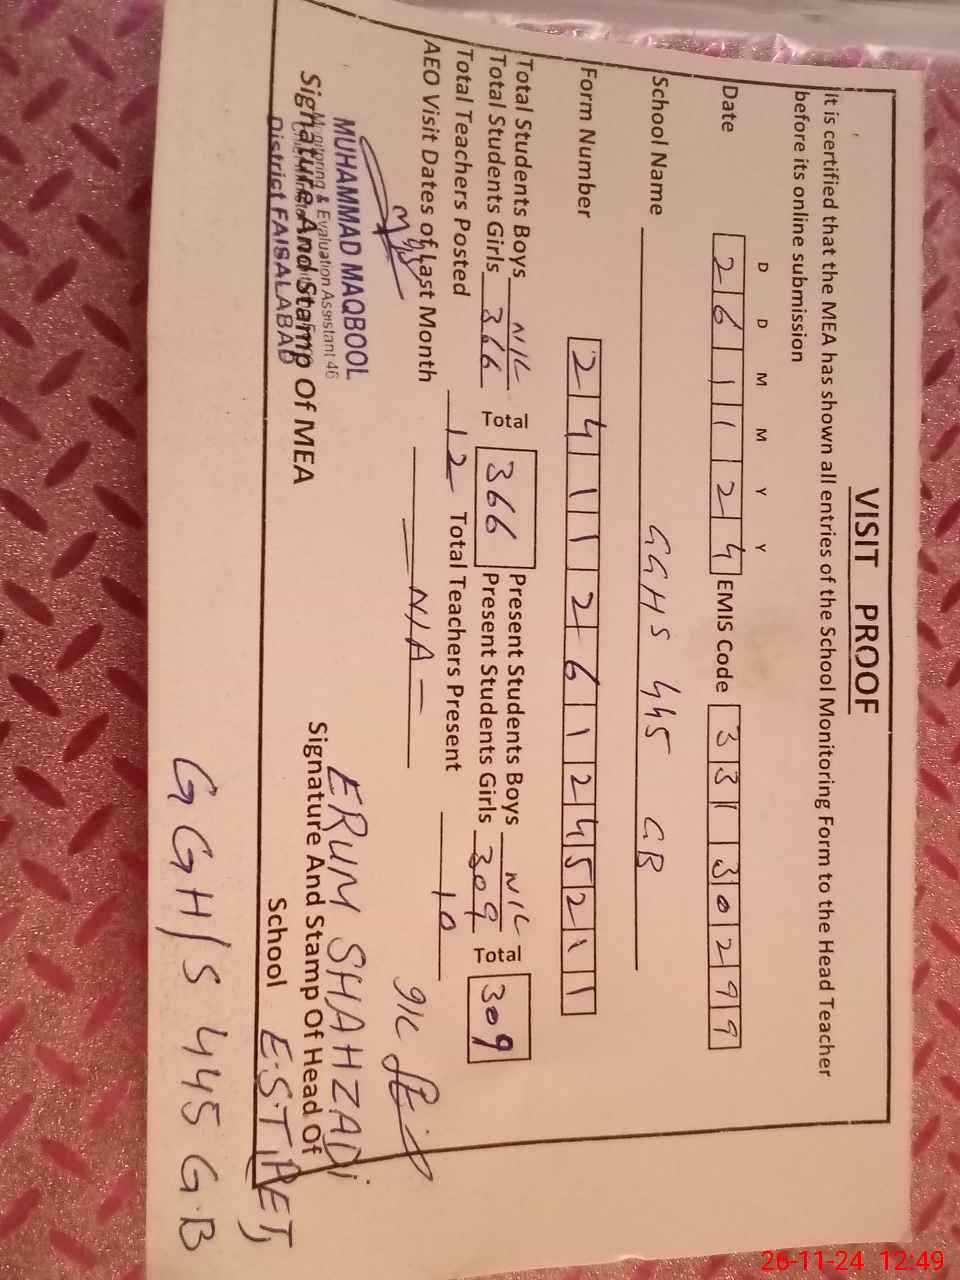 VISIT PROOF
It is certified that the MEA has shown all entries of the School Monitoring Form to the Head Teacher
before its online submission
D D M M Y Y
Date 2 6 1 1 2 4 EMIS Code 3 3 1 3 0 2 9 9
School Name GGHS 445 GB
Form Number 2 4 1 1 2 6 1 2 4 5 2 1 1
Total Students Boys NIL Present Students Boys NIL
Total Students Girls 366 Total 366 Present Students Girls 309 Total 309
Total Teachers Posted 12 Total Teachers Present 10
AEO Visit Dates of Last Month - N/A -
MUHAMMAD MAQBOOL
Monitoring & Evaluation Assistant 46
District FAISALABAD
Signature And Stamp Of MEA
I/C
ERUM SHAHZADi
Signature And Stamp Of Head Of
School E.S.T,
GGH/S 445 G.B
26-11-24 12:49